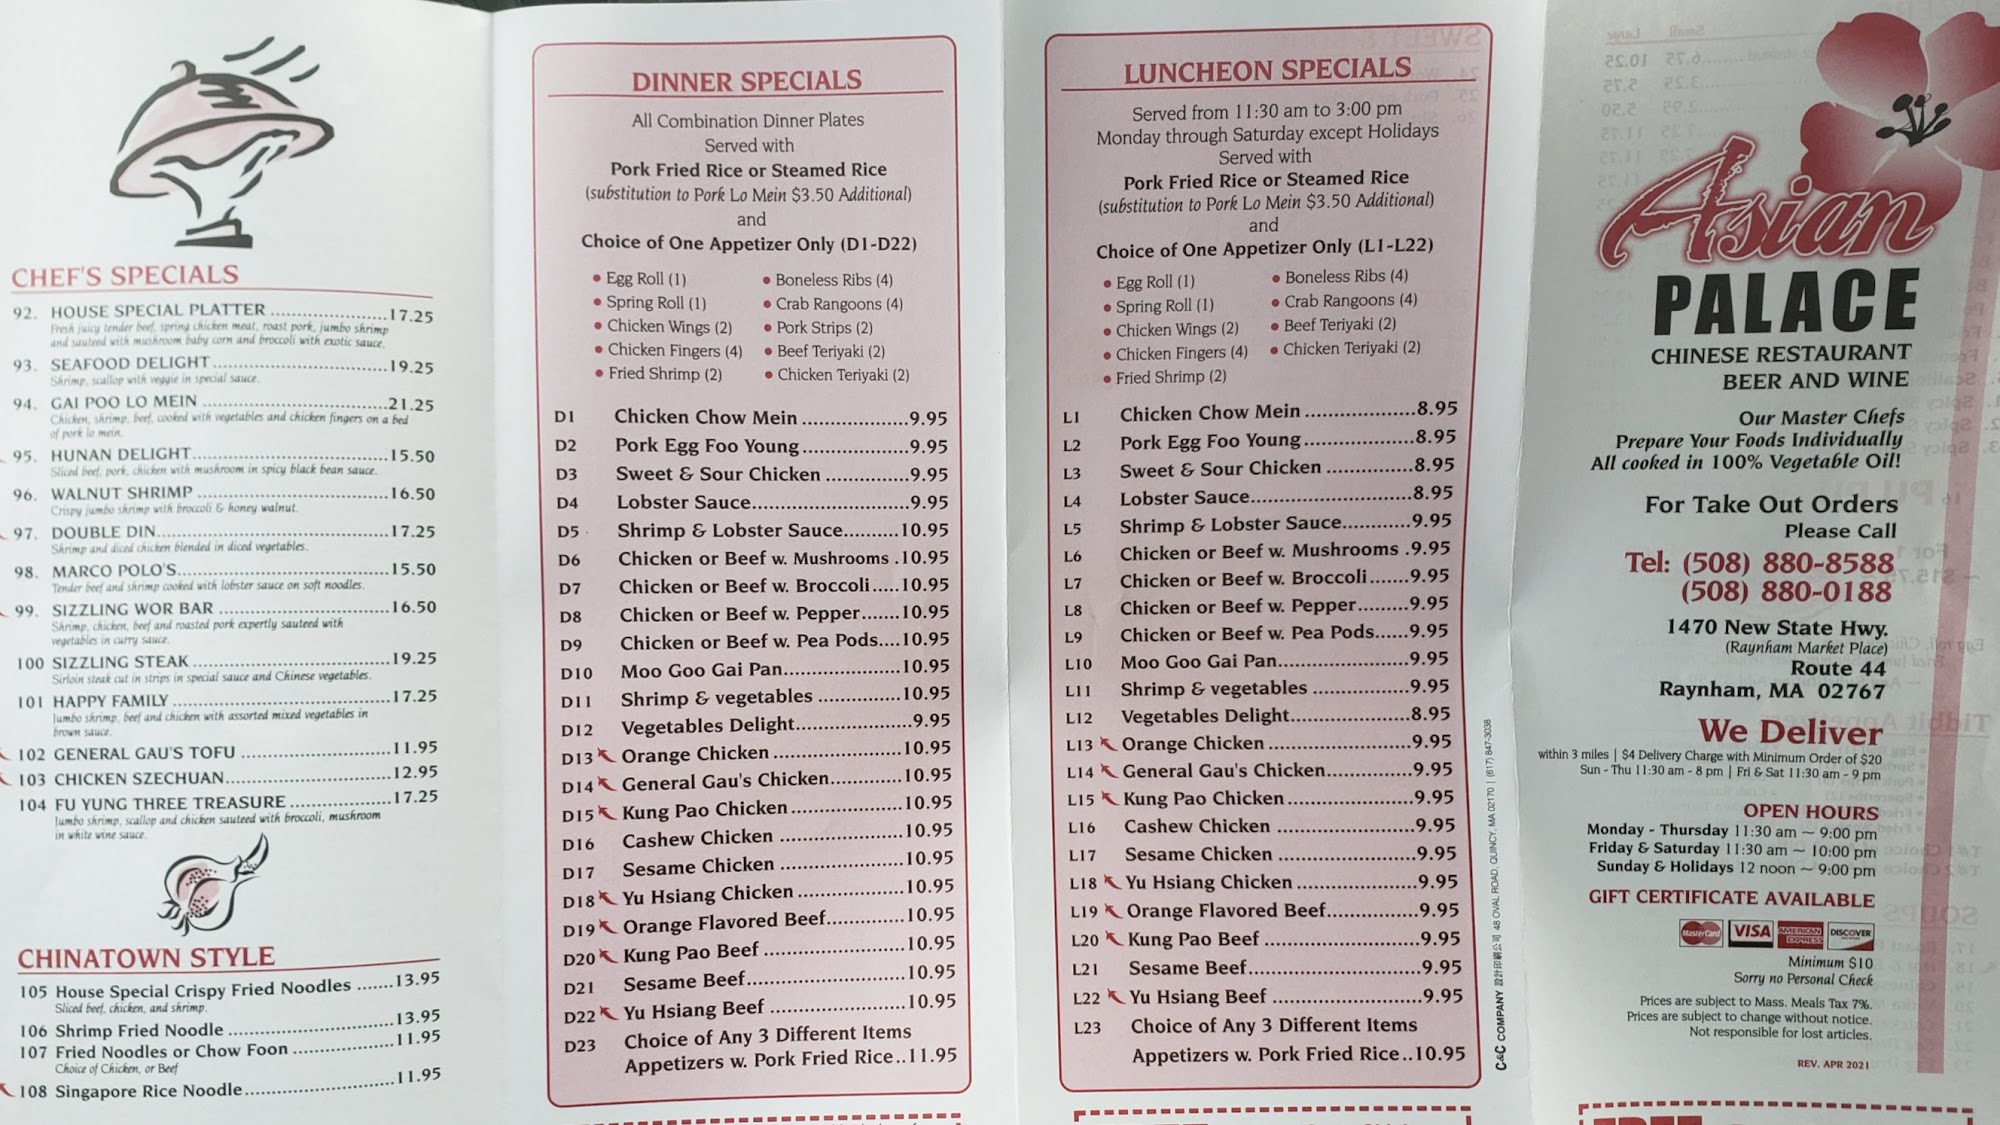 CHEF'S SPECIALS
92. HOUSE SPECIAL PLATTER ......................17.25
Fresh juicy tender beef, spring chicken meat, roast pork, jumbo shrimp
and sauteed with mushroom baby corn and broccoli with exotic sauce.
93. SEAFOOD DELIGHT..............................19.25
Shrimp, scallop with veggie in special sauce.
94. GAI POO LO MEIN ................................21.25
Chicken, shrimp, beef, cooked with vegetables and chicken fingers on a bed
of pork lo mein.
95. HUNAN DELIGHT.................................15.50
Sliced beef, pork, chicken with mushroom in spicy black bean sauce.
96. WALNUT SHRIMP ................................16.50
Crispy jumbo shrimp with broccoli & honey walnut.
97. DOUBLE DIN.......................................17.25
Shrimp and diced chicken blended in diced vegetables.
98. MARCO POLO'S...................................15.50
Tender beef and shrimp cooked with lobster sauce on soft noodles.
99. SIZZLING WOR BAR ............................16.50
Shrimp, chicken, beef and roasted pork expertly sauteed with
vegetables in curry sauce.
100 SIZZLING STEAK .................................19.25
Sirloin steak cut in strips in special sauce and Chinese vegetables.
101 HAPPY FAMILY ....................................17.25
Jumbo shrimp, beef and chicken with assorted mixed vegetables in
brown sauce.
102 GENERAL GAU'S TOFU .........................11.95
103 CHICKEN SZECHUAN...........................12.95
104 FU YUNG THREE TREASURE .................17.25
Jumbo shrimp, scallop and chicken sauteed with broccoli, mushroom
in white wine sauce.
CHINATOWN STYLE
105 House Special Crispy Fried Noodles .......13.95
Sliced beef, chicken, and shrimp.
106 Shrimp Fried Noodle ...........................13.95
107 Fried Noodles or Chow Foon .................11.95
Choice of Chicken, or Beef
108 Singapore Rice Noodle.........................11.95
DINNER SPECIALS
All Combination Dinner Plates
Served with
Pork Fried Rice or Steamed Rice
(substitution to Pork Lo Mein $3.50 Additional)
and
Choice of One Appetizer Only (D1-D22)
• Egg Roll (1) • Boneless Ribs (4)
• Spring Roll (1) • Crab Rangoons (4)
• Chicken Wings (2) • Pork Strips (2)
• Chicken Fingers (4) • Beef Teriyaki (2)
• Fried Shrimp (2) • Chicken Teriyaki (2)
D1 Chicken Chow Mein ...................9.95
D2 Pork Egg Foo Young...................9.95
D3 Sweet & Sour Chicken ...............9.95
D4 Lobster Sauce............................9.95
D5 Shrimp & Lobster Sauce..........10.95
D6 Chicken or Beef w. Mushrooms .10.95
D7 Chicken or Beef w. Broccoli.....10.95
D8 Chicken or Beef w. Pepper.......10.95
D9 Chicken or Beef w. Pea Pods....10.95
D10 Moo Goo Gai Pan.....................10.95
D11 Shrimp & vegetables ...............10.95
D12 Vegetables Delight.....................9.95
D13 Orange Chicken .......................10.95
D14 General Gau's Chicken.............10.95
D15 Kung Pao Chicken ....................10.95
D16 Cashew Chicken .......................10.95
D17 Sesame Chicken .......................10.95
D18 Yu Hsiang Chicken ...................10.95
D19 Orange Flavored Beef..............10.95
D20 Kung Pao Beef .........................10.95
D21 Sesame Beef.............................10.95
D22 Yu Hsiang Beef ........................10.95
D23 Choice of Any 3 Different Items
Appetizers w. Pork Fried Rice..11.95
LUNCHEON SPECIALS
Served from 11:30 am to 3:00 pm
Monday through Saturday except Holidays
Served with
Pork Fried Rice or Steamed Rice
(substitution to Pork Lo Mein $3.50 Additional)
and
Choice of One Appetizer Only (L1-L22)
• Egg Roll (1) • Boneless Ribs (4)
• Spring Roll (1) • Crab Rangoons (4)
• Chicken Wings (2) • Beef Teriyaki (2)
• Chicken Fingers (4) • Chicken Teriyaki (2)
• Fried Shrimp (2)
L1 Chicken Chow Mein ...................8.95
L2 Pork Egg Foo Young...................8.95
L3 Sweet & Sour Chicken ...............8.95
L4 Lobster Sauce............................8.95
L5 Shrimp & Lobster Sauce............9.95
L6 Chicken or Beef w. Mushrooms .9.95
L7 Chicken or Beef w. Broccoli.......9.95
L8 Chicken or Beef w. Pepper.........9.95
L9 Chicken or Beef w. Pea Pods......9.95
L10 Moo Goo Gai Pan.......................9.95
L11 Shrimp & vegetables .................9.95
L12 Vegetables Delight.....................8.95
L13 Orange Chicken .........................9.95
L14 General Gau's Chicken...............9.95
L15 Kung Pao Chicken ......................9.95
L16 Cashew Chicken ........................9.95
L17 Sesame Chicken ........................9.95
L18 Yu Hsiang Chicken .....................9.95
L19 Orange Flavored Beef................9.95
L20 Kung Pao Beef ...........................9.95
L21 Sesame Beef..............................9.95
L22 Yu Hsiang Beef ..........................9.95
L23 Choice of Any 3 Different Items
Appetizers w. Pork Fried Rice..10.95
C&C COMPANY 設計印刷公司 48 OVAL ROAD, QUINCY, MA 02170 | (617) 847-3038
Asian
PALACE
CHINESE RESTAURANT
BEER AND WINE
Our Master Chefs
Prepare Your Foods Individually
All cooked in 100% Vegetable Oil!
For Take Out Orders
Please Call
Tel: (508) 880-8588
(508) 880-0188
1470 New State Hwy.
(Raynham Market Place)
Route 44
Raynham, MA 02767
We Deliver
within 3 miles | $4 Delivery Charge with Minimum Order of $20
Sun - Thu 11:30 am - 8 pm | Fri & Sat 11:30 am - 9 pm
OPEN HOURS
Monday - Thursday 11:30 am ~ 9:00 pm
Friday & Saturday 11:30 am ~ 10:00 pm
Sunday & Holidays 12 noon ~ 9:00 pm
GIFT CERTIFICATE AVAILABLE
MasterCard VISA AMERICAN EXPRESS DISCOVER
Minimum $10
Sorry no Personal Check
Prices are subject to Mass. Meals Tax 7%.
Prices are subject to change without notice.
Not responsible for lost articles.
REV. APR 2021